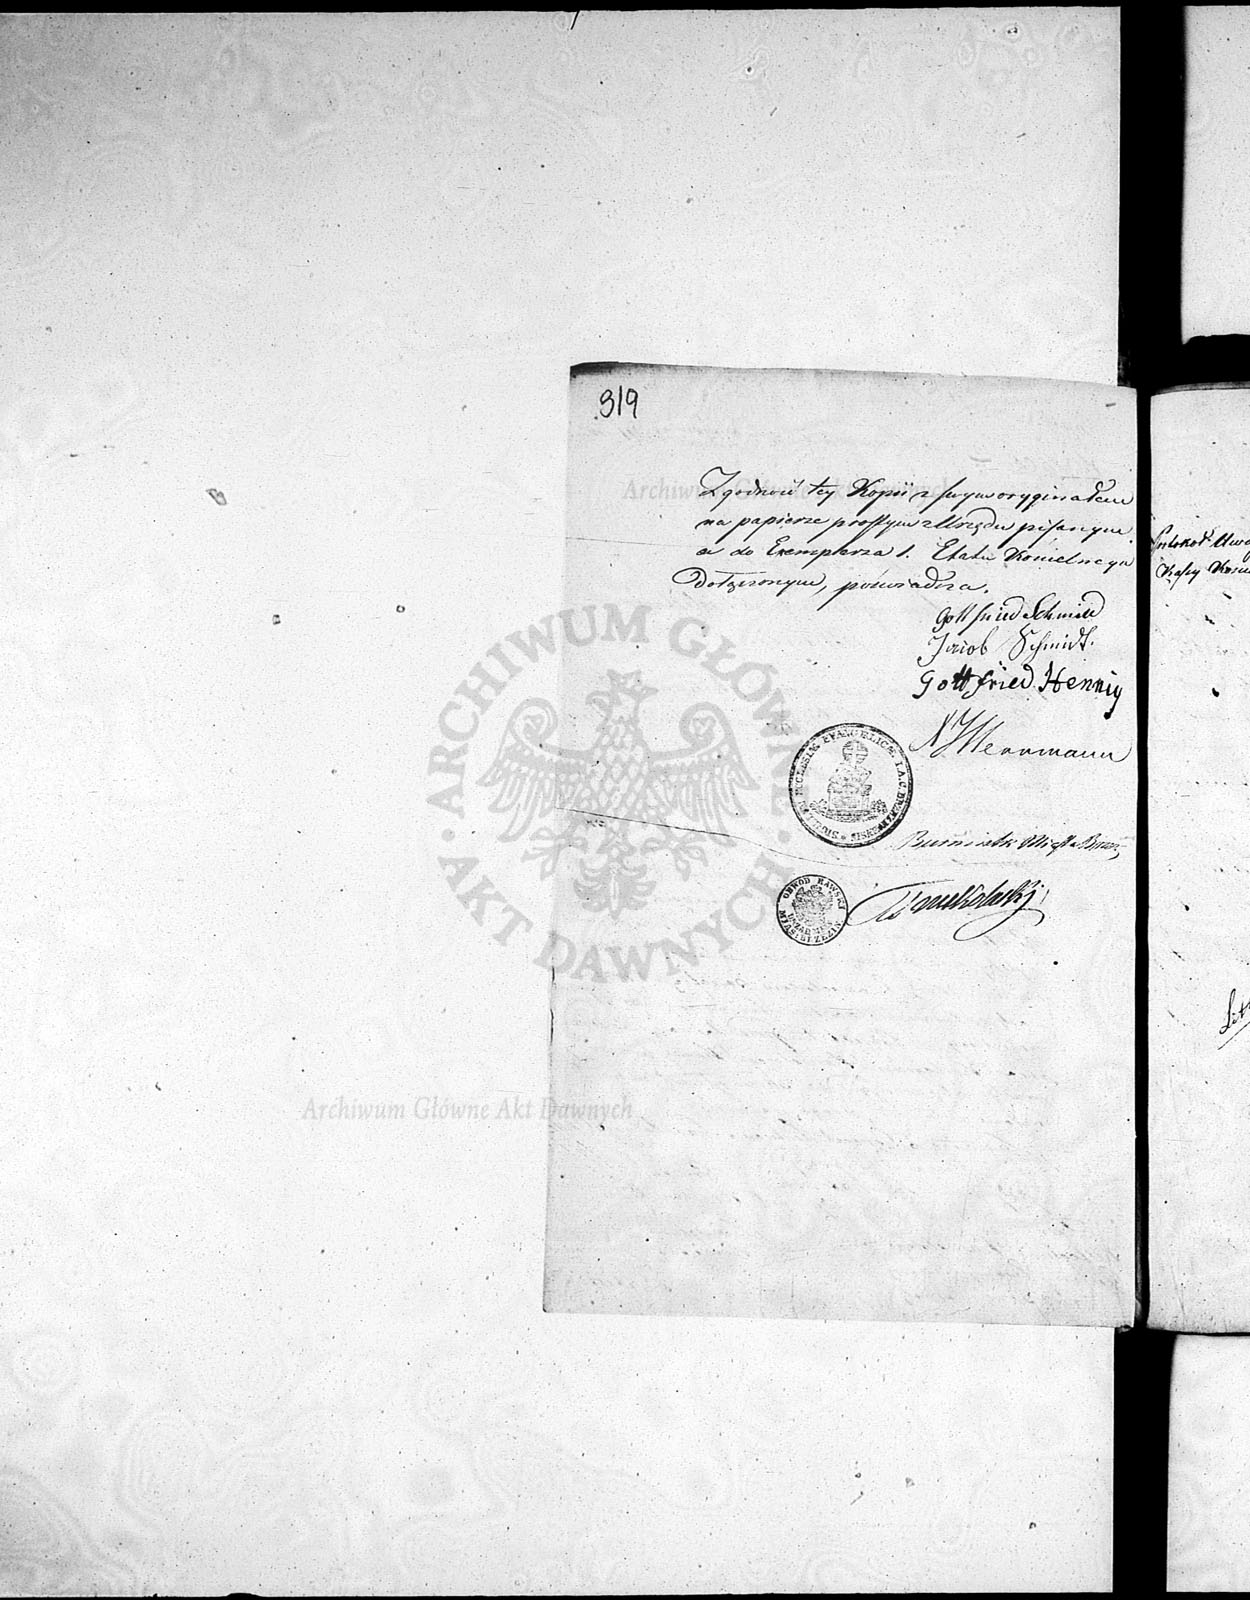 319
Zgodność tey Kopii z swym oryginałem
na papierze prostym z Urzędu pisanym
a do Exemplarza 1. Etatu Kościelnego
dołączonym, poświadcza.
Gottfried Schmidt
Jacob Schmidt.
Gottfried Hennig
Herrmann
ECCLESIÆ EVANGELICÆ I.A.C.
Burmistrz Miasta
OBWOD RAWSKI
URZĄD MU
MIASTA BRZEZIN
Protokół
Kassy
Lit
Archiwum Główne Akt Dawnych
ARCHIWUM GŁÓWNE
AKT DAWNYCH
Archiwum Główne Akt Dawnych